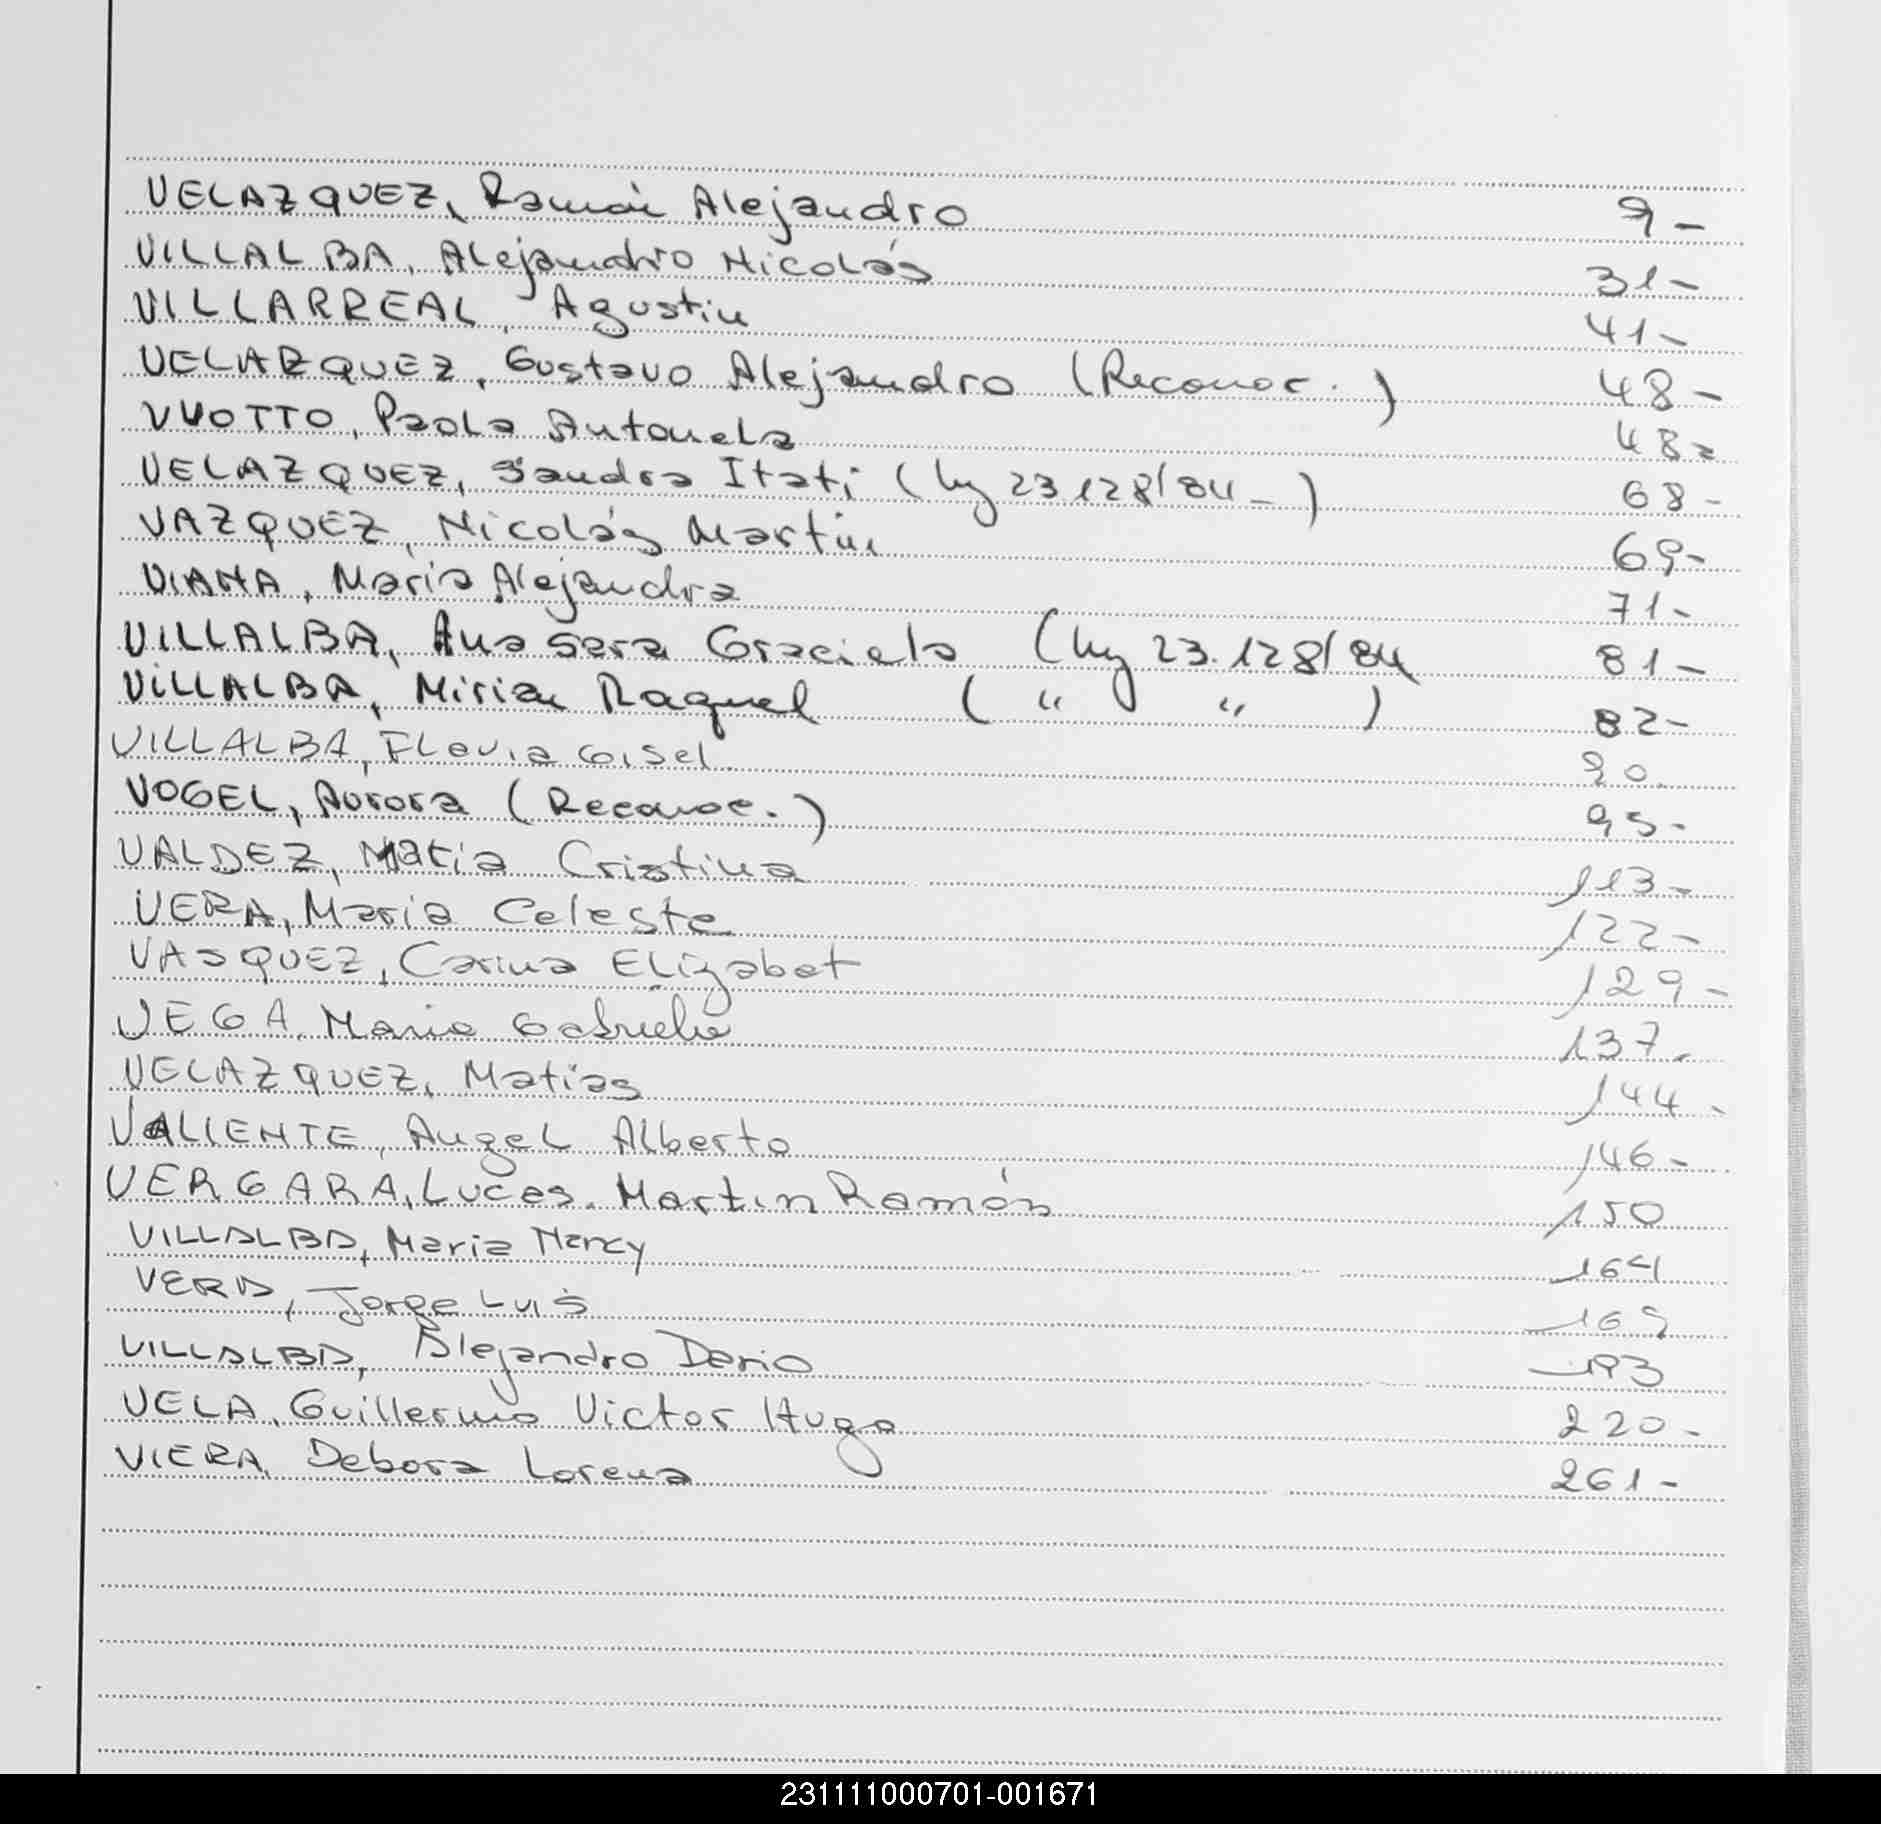 VELAZQUEZ, Ramón Alejandro 9-
VILLALBA, Alejandro Nicolás 31-
VILLARREAL, Agustin 41-
VELAZQUEZ, Gustavo Alejandro (Reconoc.) 48-
VUOTTO, Paola Antonela 48-
VELAZQUEZ, Sandra Itati (ley 23.128/84-) 68-
VAZQUEZ, Nicolás Martin 69-
VIANA, Maria Alejandra 71-
VILLALBA, Ana Sara Graciela (ley 23.128/84 81-
VILLALBA, Mirian Raquel ( " " ) 82-
VILLALBA, Flavia Gisel. 90.
VOGEL, Aurora (Reconoc.) 95-
VALDEZ, Maria Cristina 113-
VERA, Maria Celeste 122-
VASQUEZ, Carina Elizabet 129-
VEGA, Maria Gabriela 137-
VELAZQUEZ, Matias 144-
VALIENTE, Angel Alberto 146-
VERGARA, Lucas Martin Ramón 150
VILLALBA, Maria Nancy 164
VERA, Jorge Luis 169
VILLALBA, Alejandro Dario 193
VELA, Guillermo Victor Hugo 220-
VIERA, Debora Lorena 261-
231111000701-001671